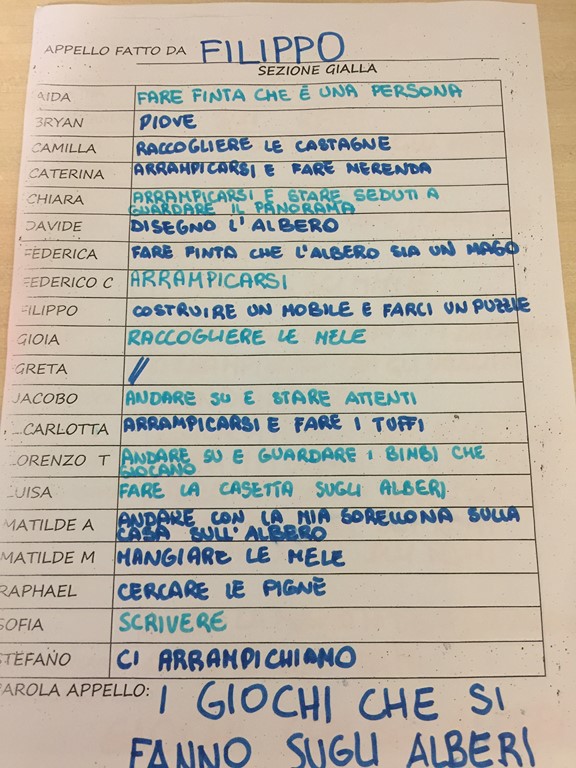 APPELLO FATTO DA FILIPPO
SEZIONE GIALLA
AIDA FARE FINTA CHE È UNA PERSONA
BRYAN PIOVE
CAMILLA RACCOGLIERE LE CASTAGNE
CATERINA ARRAMPICARSI E FARE MERENDA
CHIARA ARRAMPICARSI E STARE SEDUTI A
GUARDARE IL PANORAMA
DAVIDE DISEGNO L'ALBERO
FEDERICA FARE FINTA CHE L'ALBERO SIA UN MAGO
FEDERICO C ARRAMPICARSI
FILIPPO COSTRUIRE UN MOBILE E FARCI UN PUZZLE
GIOIA RACCOGLIERE LE MELE
GRETA //
JACOBO ANDARE SU E STARE ATTENTI
L.CARLOTTA ARRAMPICARSI E FARE I TUFFI
LORENZO T ANDARE SU E GUARDARE I BIMBI CHE
GIOCANO
LUISA FARE LA CASETTA SUGLI ALBERI
MATILDE A ANDARE CON LA MIA SORELLONA SULLA
CASA SULL'ALBERO
MATILDE M MANGIARE LE MELE
RAPHAEL CERCARE LE PIGNE
SOFIA SCRIVERE
STEFANO CI ARRAMPICHIAMO
PAROLA APPELLO: I GIOCHI CHE SI
FANNO SUGLI ALBERI